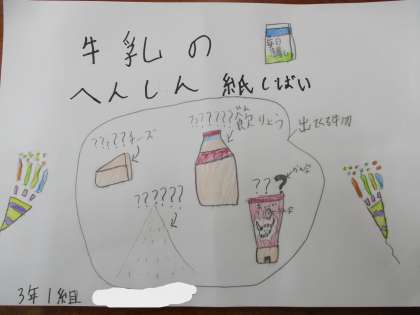 牛乳の
へんしん 紙しばい
??????チーズ
??????飲りょう
出てくる物
??????
???
3年1組